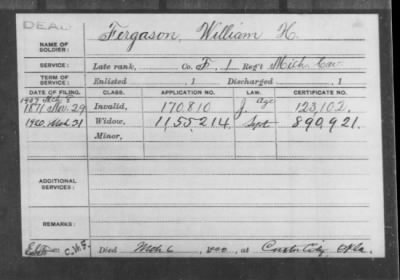 DEAD
NAME OF SOLDIER: Fergason, William H.
SERVICE: Late rank, Co. F, 1 Reg't Mich. Cav
TERM OF SERVICE: Enlisted , 1 Discharged , 1
DATE OF FILING. CLASS. APPLICATION NO. LAW. CERTIFICATE NO.
1907 Mch 8
1871 29 Invalid, 170.810 Age 123,102.
1920. Mch 31 Widow, 1,155.214 Sept 890,921.
Minor,
ADDITIONAL SERVICES:
REMARKS:
C.W.F. Died Mch 6 at Custer City, Okla.